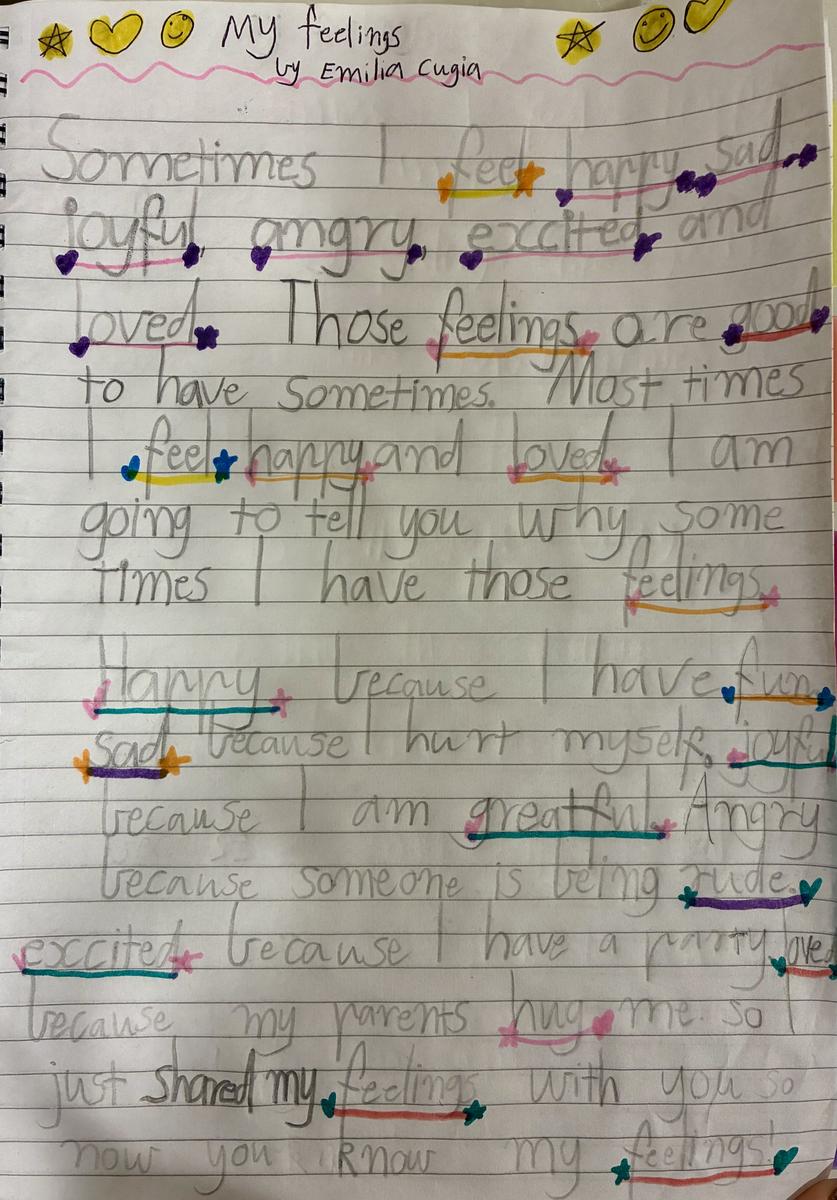 My feelings
by Emilia Cugia
Sometimes I feel happy, sad,
joyful, angry, exccited and
loved. Those feelings are good
to have sometimes. Most times
I feel happy and loved. I am
going to tell you why some
times I have those feelings.
Happy because I have fun,
sad because I hurt myself, joyful
because I am greatful. Angry
because someone is being rude.
exccited because I have a party, loved
because my parents hug me. so I
just shared my feelings with you so
now you know my feelings!